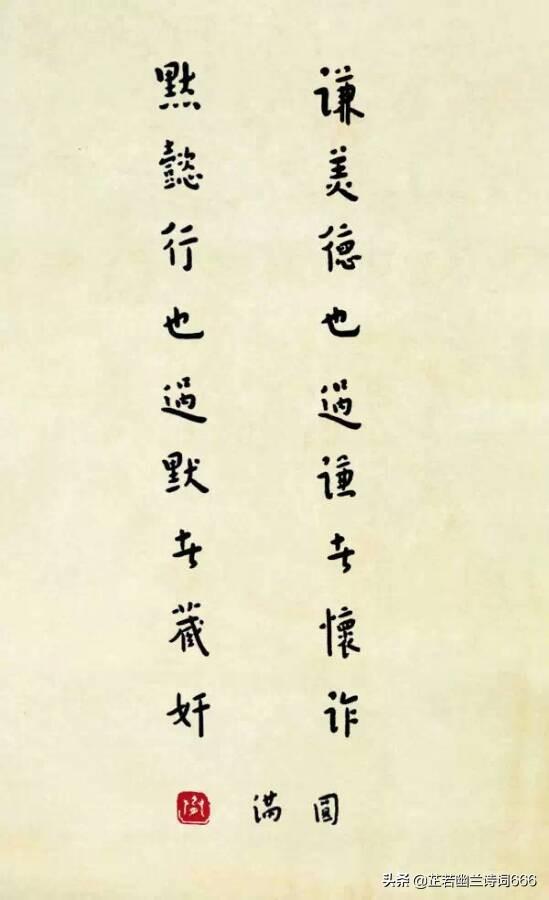 谦美德也過谦者懷诈
默懿行也過默者藏奸
圆满
头条 @芷若幽兰诗词666